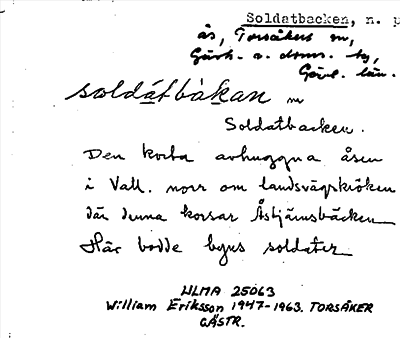 Soldatbacken, n. p
ås, Torsåkers sn,
Gästr. ö. doms. hg,
Gävl. län.
soldátbàkan m
Soldatbacken.
Den korta avhuggna åsen
i Vall. norr om landsvägskröken
där denna korsar Åstjärnsbäcken
Här bodde byns soldater
ULMA 25063
William Eriksson 1947-1963. TORSÅKER
GÄSTR.